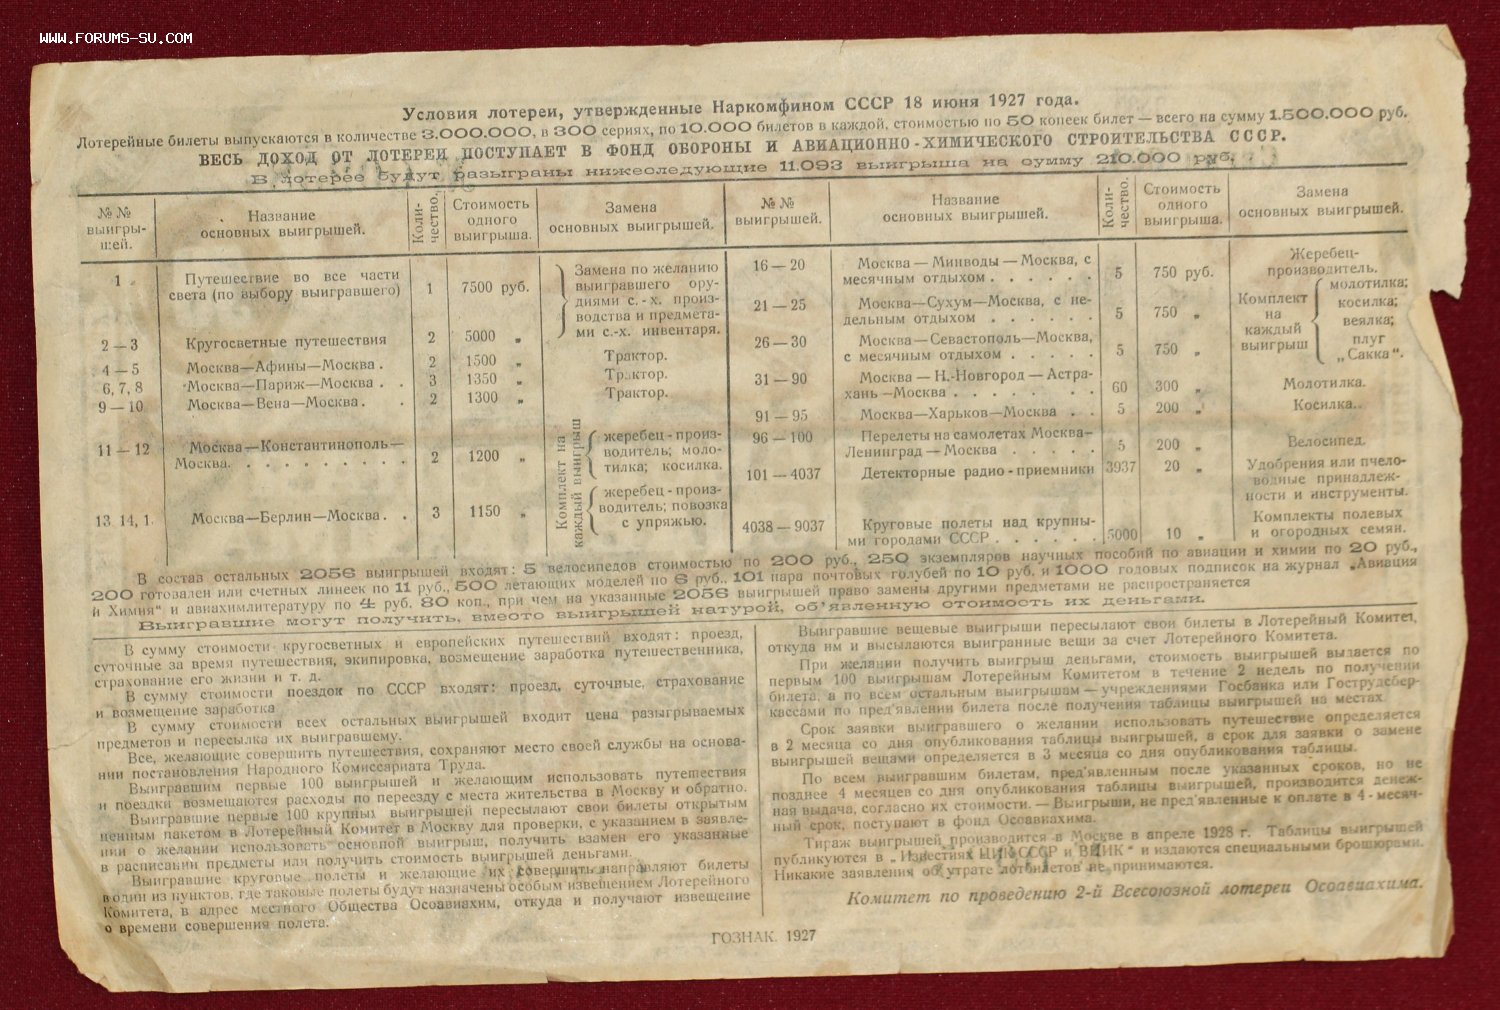 WWW.FORUMS-SU.COM
Условия лотереи, утвержденные Наркомфином СССР 18 июня 1927 года.
Лотерейные билеты выпускаются в количестве 3.000.000, в 300 сериях, по 10.000 билетов в каждой, стоимостью по 50 копеек билет — всего на сумму 1.500.000 руб.
ВЕСЬ ДОХОД ОТ ЛОТЕРЕИ ПОСТУПАЕТ В ФОНД ОБОРОНЫ И АВИАЦИОННО-ХИМИЧЕСКОГО СТРОИТЕЛЬСТВА СССР.
В лотерее будут разыграны нижеследующие 11.093 выигрыша на сумму 210.000 руб.
№№ выигры-шей.
Название основных выигрышей.
Коли-чество.
Стоимость одного выигрыша.
Замена основных выигрышей.
1
Путешествие во все части
света (по выбору выигравшего)
1
7500 руб.
Замена по желанию
выигравшего ору-
диями с.-х. произ-
водства и предмета-
ми с.-х. инвентаря.
2 — 3 Кругосветные путешествия 2 5000 „
4 — 5 Москва—Афины—Москва . 2 1500 „ Трактор.
6, 7, 8 Москва—Париж—Москва . . 3 1350 „ Трактор.
9 — 10 Москва—Вена—Москва . . 2 1300 „ Трактор.
11 — 12 Москва—Константинополь—
Москва. . . . . . . . . . 2 1200 „
Комплект на каждый выигрыш
жеребец-произ-
водитель; моло-
тилка; косилка.
13, 14, 1 Москва—Берлин—Москва . . 3 1150 „
жеребец-произ-
водитель; повозка
с упряжью.
№№ выигрышей.
Название основных выигрышей.
Коли-чество.
Стоимость одного выигрыша.
Замена основных выигрышей.
16 — 20 Москва — Минводы — Москва, с
месячным отдыхом . . . . . . 5 750 руб.
21 — 25 Москва—Сухум—Москва, с не-
дельным отдыхом . . . . . . 5 750 „
26 — 30 Москва—Севастополь—Москва,
с месячным отдыхом . . . . . 5 750 „
Жеребец-
производитель.
Комплект
на
каждый
выигрыш
молотилка;
косилка;
веялка;
плуг
„Сакка".
31 — 90 Москва — Н.-Новгород — Астра-
хань — Москва . . . . . . . . 60 300 „ Молотилка.
91 — 95 Москва—Харьков—Москва . . 5 200 „ Косилка.
96 — 100 Перелеты на самолетах Москва—
Ленинград — Москва . . . . . 5 200 „ Велосипед.
101 — 4037 Детекторные радио-приемники 3937 20 „
Удобрения или пчело-
водные принадлеж-
ности и инструменты.
4038 — 9037 Круговые полеты над крупны-
ми городами СССР . . . . . . 5000 10 „
Комплекты полевых
и огородных семян.
В состав остальных 2056 выигрышей входят: 5 велосипедов стоимостью по 200 руб., 250 экземпляров научных пособий по авиации и химии по 20 руб.,
200 готовален или счетных линеек по 11 руб., 500 летающих моделей по 6 руб., 101 пара почтовых голубей по 10 руб. и 1000 годовых подписок на журнал „Авиация
и Химия" и авиахимлитературу по 4 руб. 80 коп., при чем на указанные 2056 выигрышей право замены другими предметами не распространяется
Выигравшие могут получить, вместо выигрышей натурой, об'явленную стоимость их деньгами.
В сумму стоимости кругосветных и европейских путешествий входят: проезд,
суточные за время путешествия, экипировка, возмещение заработка путешественника,
страхование его жизни и т. д.
В сумму стоимости поездок по СССР входят: проезд, суточные, страхование
и возмещение заработка
В сумму стоимости всех остальных выигрышей входит цена разыгрываемых
предметов и пересылка их выигравшему.
Все, желающие совершить путешествия, сохраняют место своей службы на основа-
нии постановления Народного Комиссариата Труда.
Выигравшим первые 100 выигрышей и желающим использовать путешествия
и поездки возмещаются расходы по переезду с места жительства в Москву и обратно.
Выигравшие первые 100 крупных выигрышей пересылают свои билеты открытым
ценным пакетом в Лотерейный Комитет в Москву для проверки, с указанием в заявле-
нии о желании использовать основной выигрыш, получить взамен его указанные
в расписании предметы или получить стоимость выигрышей деньгами.
Выигравшие круговые полеты и желающие их совершить направляют билеты
в один из пунктов, где таковые полеты будут назначены особым извещением Лотерейного
Комитета, в адрес местного Общества Осоавиахим, откуда и получают извещение
о времени совершения полета.
Выигравшие вещевые выигрыши пересылают свои билеты в Лотерейный Комитет,
откуда им и высылаются выигранные вещи за счет Лотерейного Комитета.
При желании получить выигрыш деньгами, стоимость выигрышей выдается по
первым 100 выигрышам Лотерейным Комитетом в течение 2 недель по получении
билета, а по всем остальным выигрышам — учреждениями Госбанка или Гострудсбер-
кассами по пред'явлении билета после получения таблицы выигрышей на местах.
Срок заявки выигравшего о желании использовать путешествие определяется
в 2 месяца со дня опубликования таблицы выигрышей, а срок для заявки о замене
выигрышей вещами определяется в 3 месяца со дня опубликования таблицы.
По всем выигравшим билетам, пред'явленным после указанных сроков, но не
позднее 4 месяцев со дня опубликования таблицы выигрышей, производится денеж-
ная выдача, согласно их стоимости. — Выигрыши, не пред'явленные к оплате в 4-месяч-
ный срок, поступают в фонд Осоавиахима.
Тираж выигрышей производится в Москве в апреле 1928 г. Таблицы выигрышей
публикуются в „Известиях ЦИК СССР и ВЦИК" и издаются специальными брошюрами.
Никакие заявления об утрате лотбилетов не принимаются.
Комитет по проведению 2-й Всесоюзной лотереи Осоавиахима.
ГОЗНАК. 1927